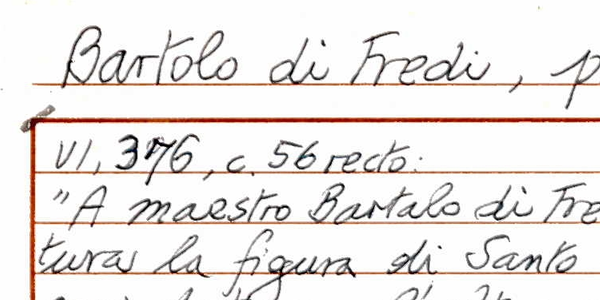 Bartolo di Fredi, p
VI, 376, c. 56 recto:
"A maestro Bartalo di Fre
tura la figura di Santo